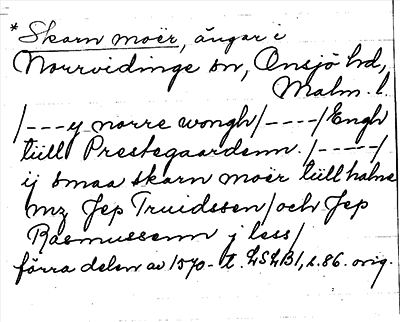 *Skarn moër, ängar i
Norrvidinge sn, Onsjö hd,
Malm. l.
/---y norre wongh/----/Engh
tiill Prestegaardenn./----/
ij smaa skarn moër tiill halne
mz Jep Truidssen/och Jep
Rasmussenn j less/
förra delen av 1570-t. LSLB1, s. 86. orig.